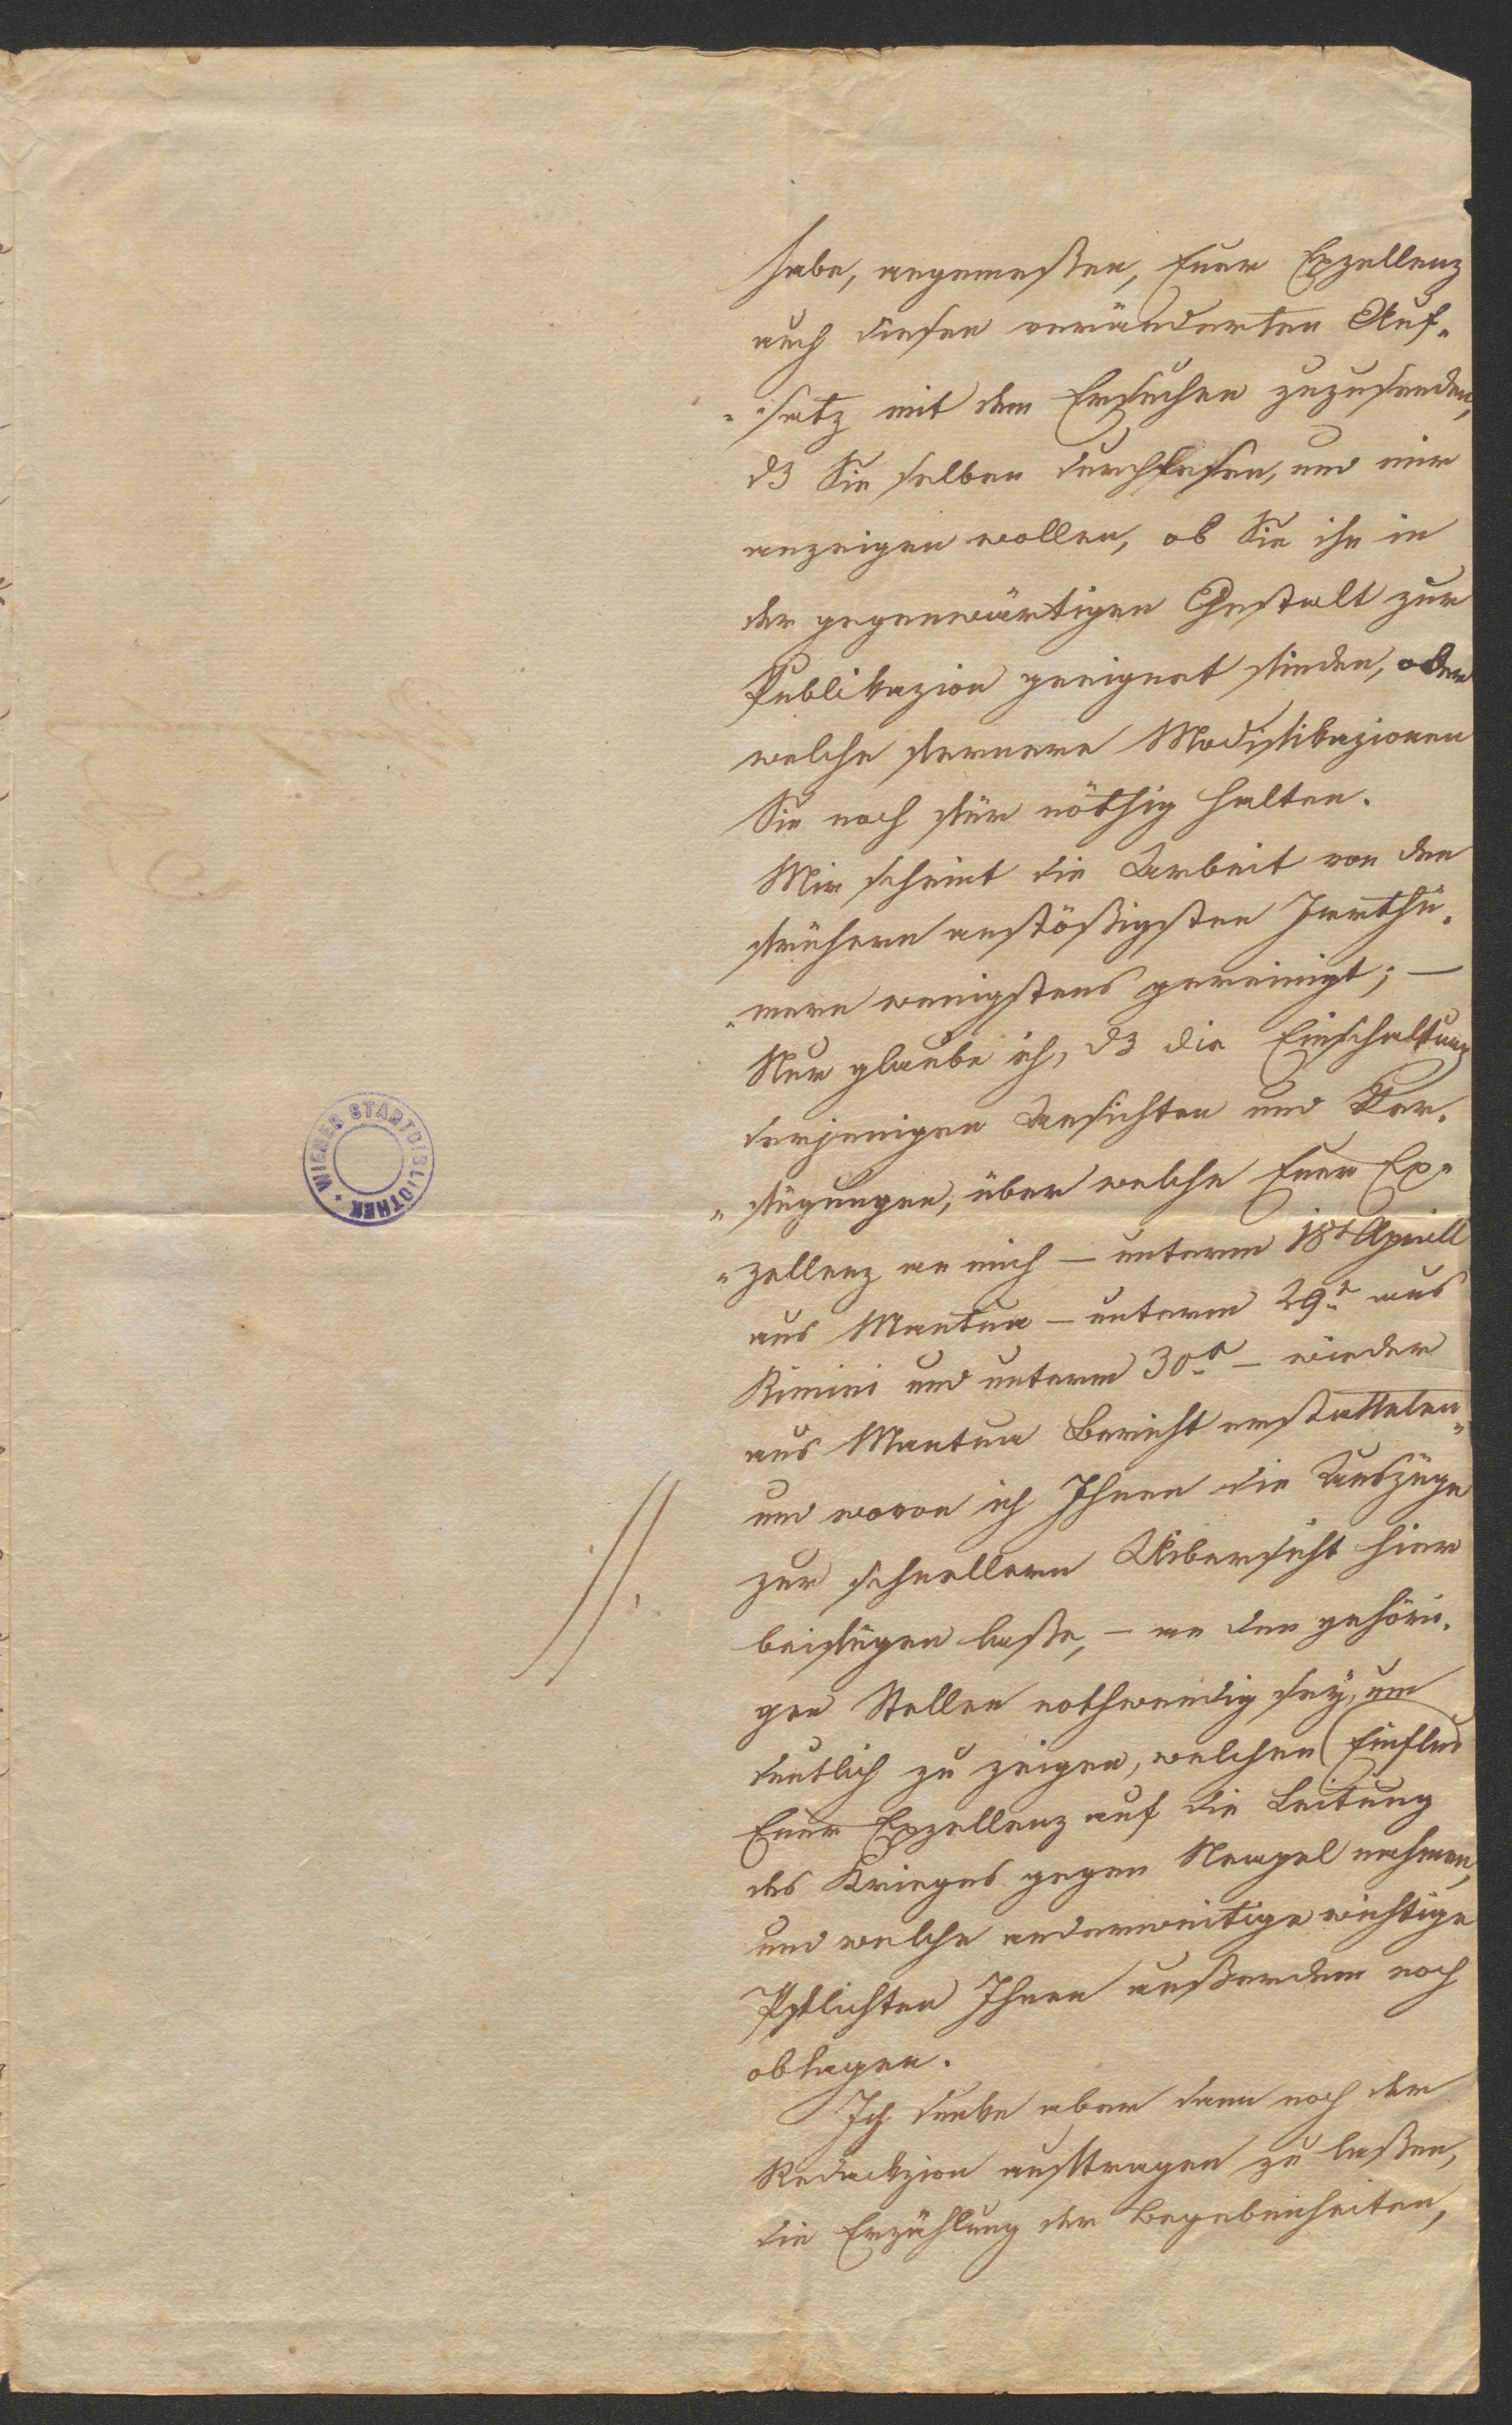 habe, angemeßen, Euer Exzellenz
auch diesen veränderten Auf-
-satz mit dem Ersuchen zuzusenden,
dß Sie selben durchlesen, und mir
anzeigen wollen, ob Sie ihn in
der gegenwärtigen Gestalt zur
Publikazion geeignet finden, oder
welche fernere Modifikazionen
Sie noch für nöthig halten.
Mir scheint die Arbeit von den
frühern anstößigsten Irrthü-
-mern wenigstens gereinigt; —
Nur glaube ich, dß die Einschaltung
derjenigen Ansichten und Ver-
-fügungen, über welche Euer Ex-
-zellenz an mich — unterm 18t April
aus Mantua — unterm 29t aus
Rimini und unterm 30n — wieder
aus Mantua Bericht erstatteten,
und wovon ich Ihnen die Auszüge
zur schnellern Uibersicht hier
beifügen laße, — an den gehöri-
gen Stellen nothwendig sey, um
deutlich zu zeigen, welchen Einfluß
Euer Exzellenz auf die Leitung
des Krieges gegen Neapel nahmen,
und welche anderweitige wichtige
Pflichten Ihnen außerdem noch
oblagen.
Ich denke aber dann noch der
Redackzion auftragen zu laßen,
die Erzählung der Begebenheiten,
WIENER STADTBIBLIOTHEK